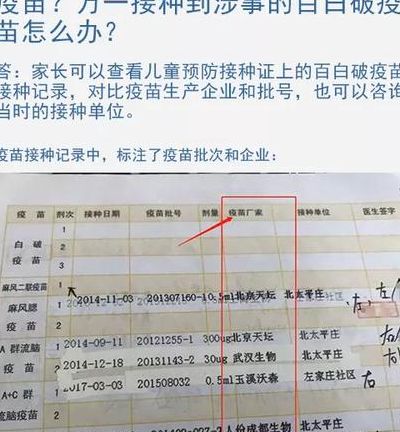 疫苗？万一接种到涉事的百白破疫
苗怎么办？
答：家长可以查看儿童预防接种证上的百白破疫苗
接种记录，对比疫苗生产企业和批号，也可以咨询
当时的接种单位。
疫苗接种记录中，标注了疫苗批次和企业：
疫 苗 剂次 接种日期 疫苗批号 剂量 疫苗厂家 接种单位 医生签字
白 破 疫 苗 1 2 3
麻风二联疫苗
麻风腮 2014-11-03 201307160-1 0.5ml 北京天坛 北太平庄 右
疫苗
A 群流脑 1 2014-09-11 20121255-1 300ug 北京天坛 北太平庄
疫 苗 2 2014-12-18 20131143-2 30ug 武汉生物 北太平庄
A+C 群 1 2017-03-03 201508032 0.5ml 玉溪沃森 左家庄社区 右
流脑疫苗 2
1 人份 成都生物 北太平庄